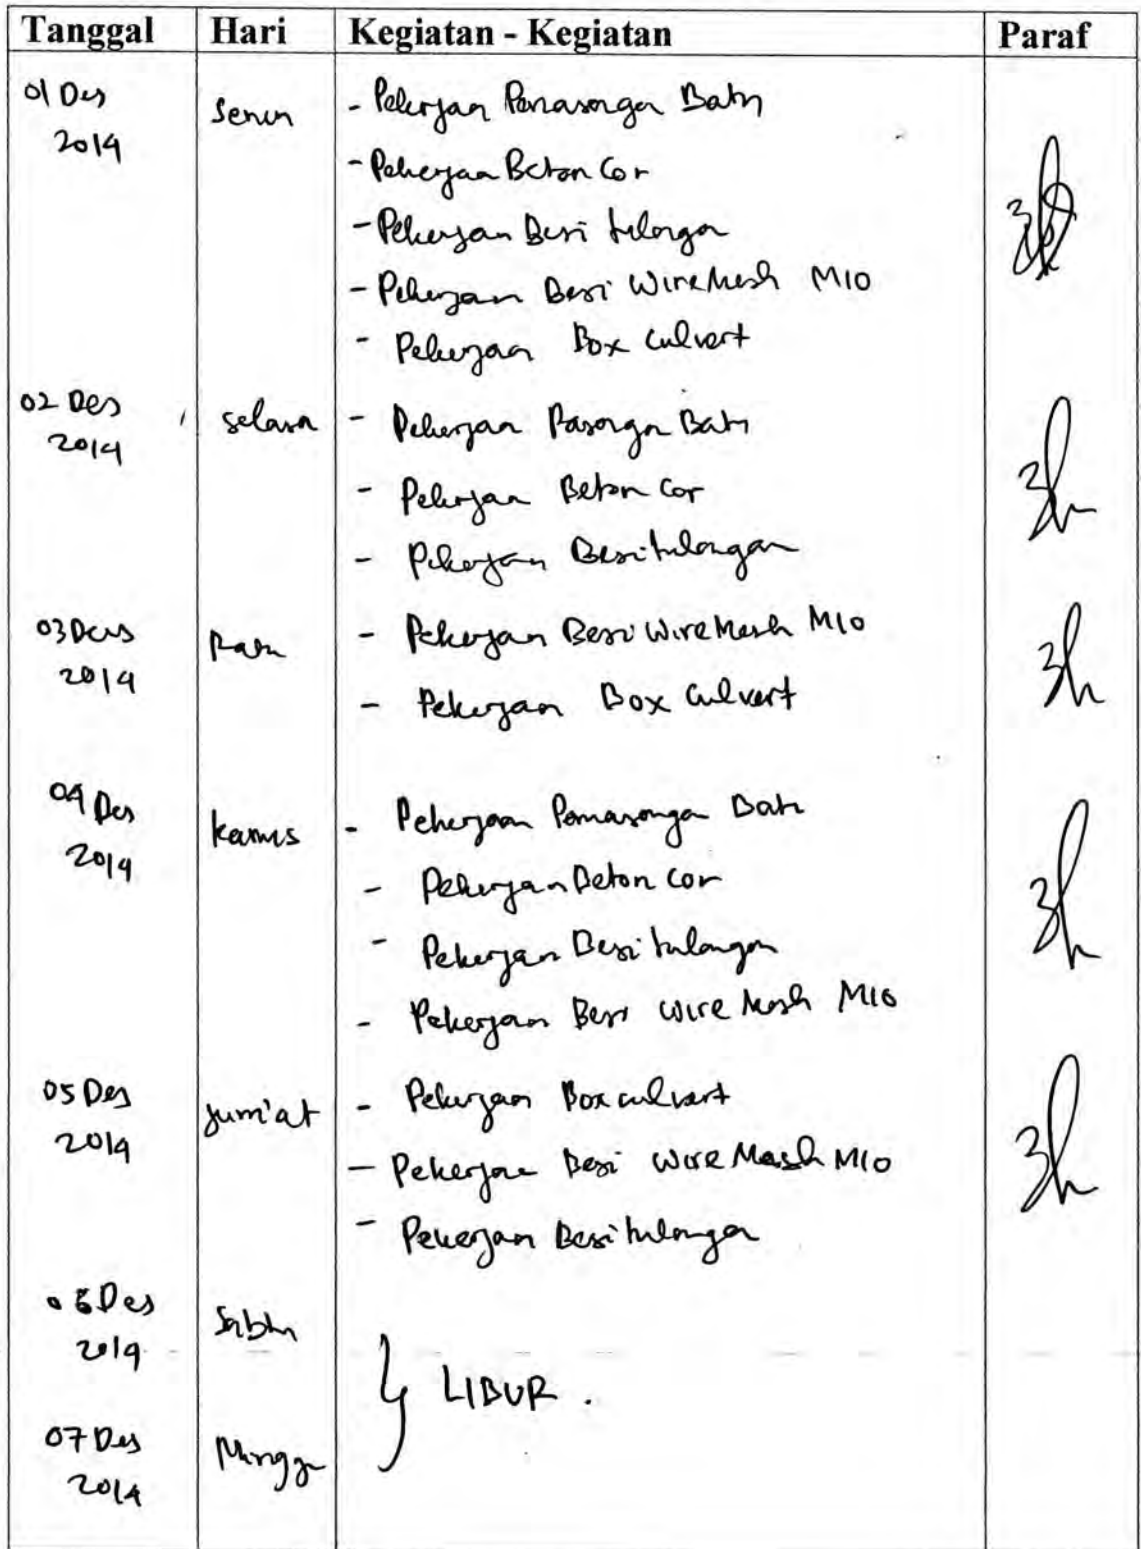 Tanggal Hari Kegiatan - Kegiatan Paraf
01 Des 2014 Senin - Pekerjaan Pemasangan Batu
- Pekerjaan Beton Cor
- Pekerjaan Besi tulangan
- Pekerjaan Besi WireMesh M10
- Pekerjaan Box culvert
02 Des 2014 selasa - Pekerjaan Pasangan Batu
- Pekerjaan Beton Cor
- Pekerjaan Besi tulangan
03 Des 2014 Rabu - Pekerjaan Besi WireMesh M10
- Pekerjaan Box Culvert
04 Des 2014 kamis - Pekerjaan Pemasangan Batu
- Pekerjaan Beton cor
- Pekerjaan Besi tulangan
- Pekerjaan Besi wire Mesh M10
05 Des 2014 jum'at - Pekerjaan Box culvert
- Pekerjaan Besi wire Mesh M10
- Pekerjaan Besi tulangan
06 Des 2014 Sabtu
LIBUR .
07 Des 2014 Minggu